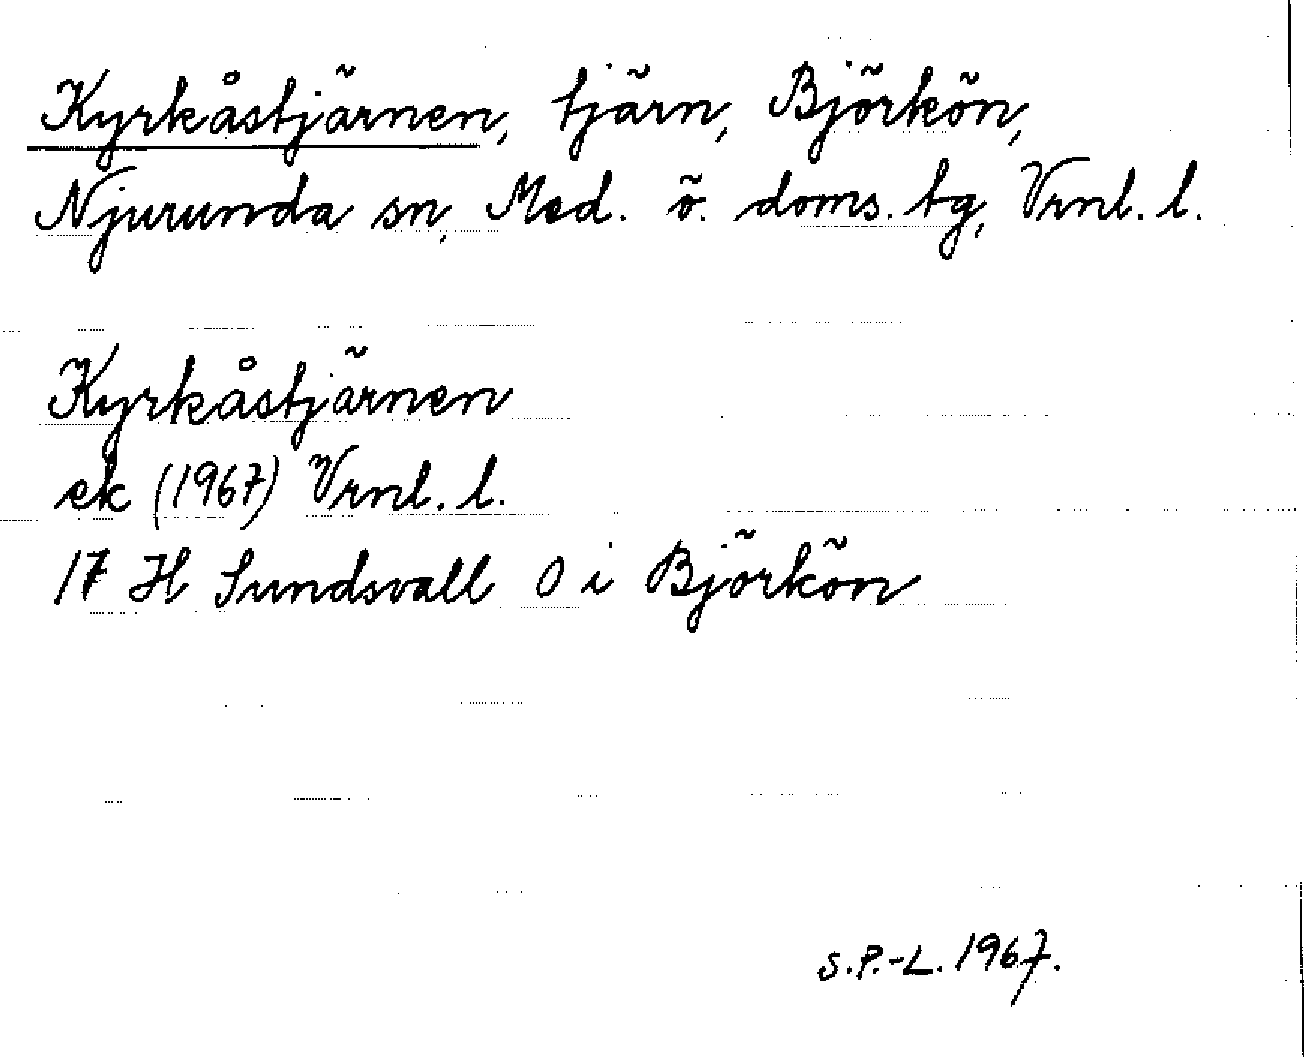 Kyrkåstjärnen, tjärn, Björkön,
Njurunda sn, Med. ö. doms. tg, Vrnl. l.
Kyrkåstjärnen
ek (1967) Vrnl. l.
17 H Sundsvall O i Björkön
S.P.-L. 1967.